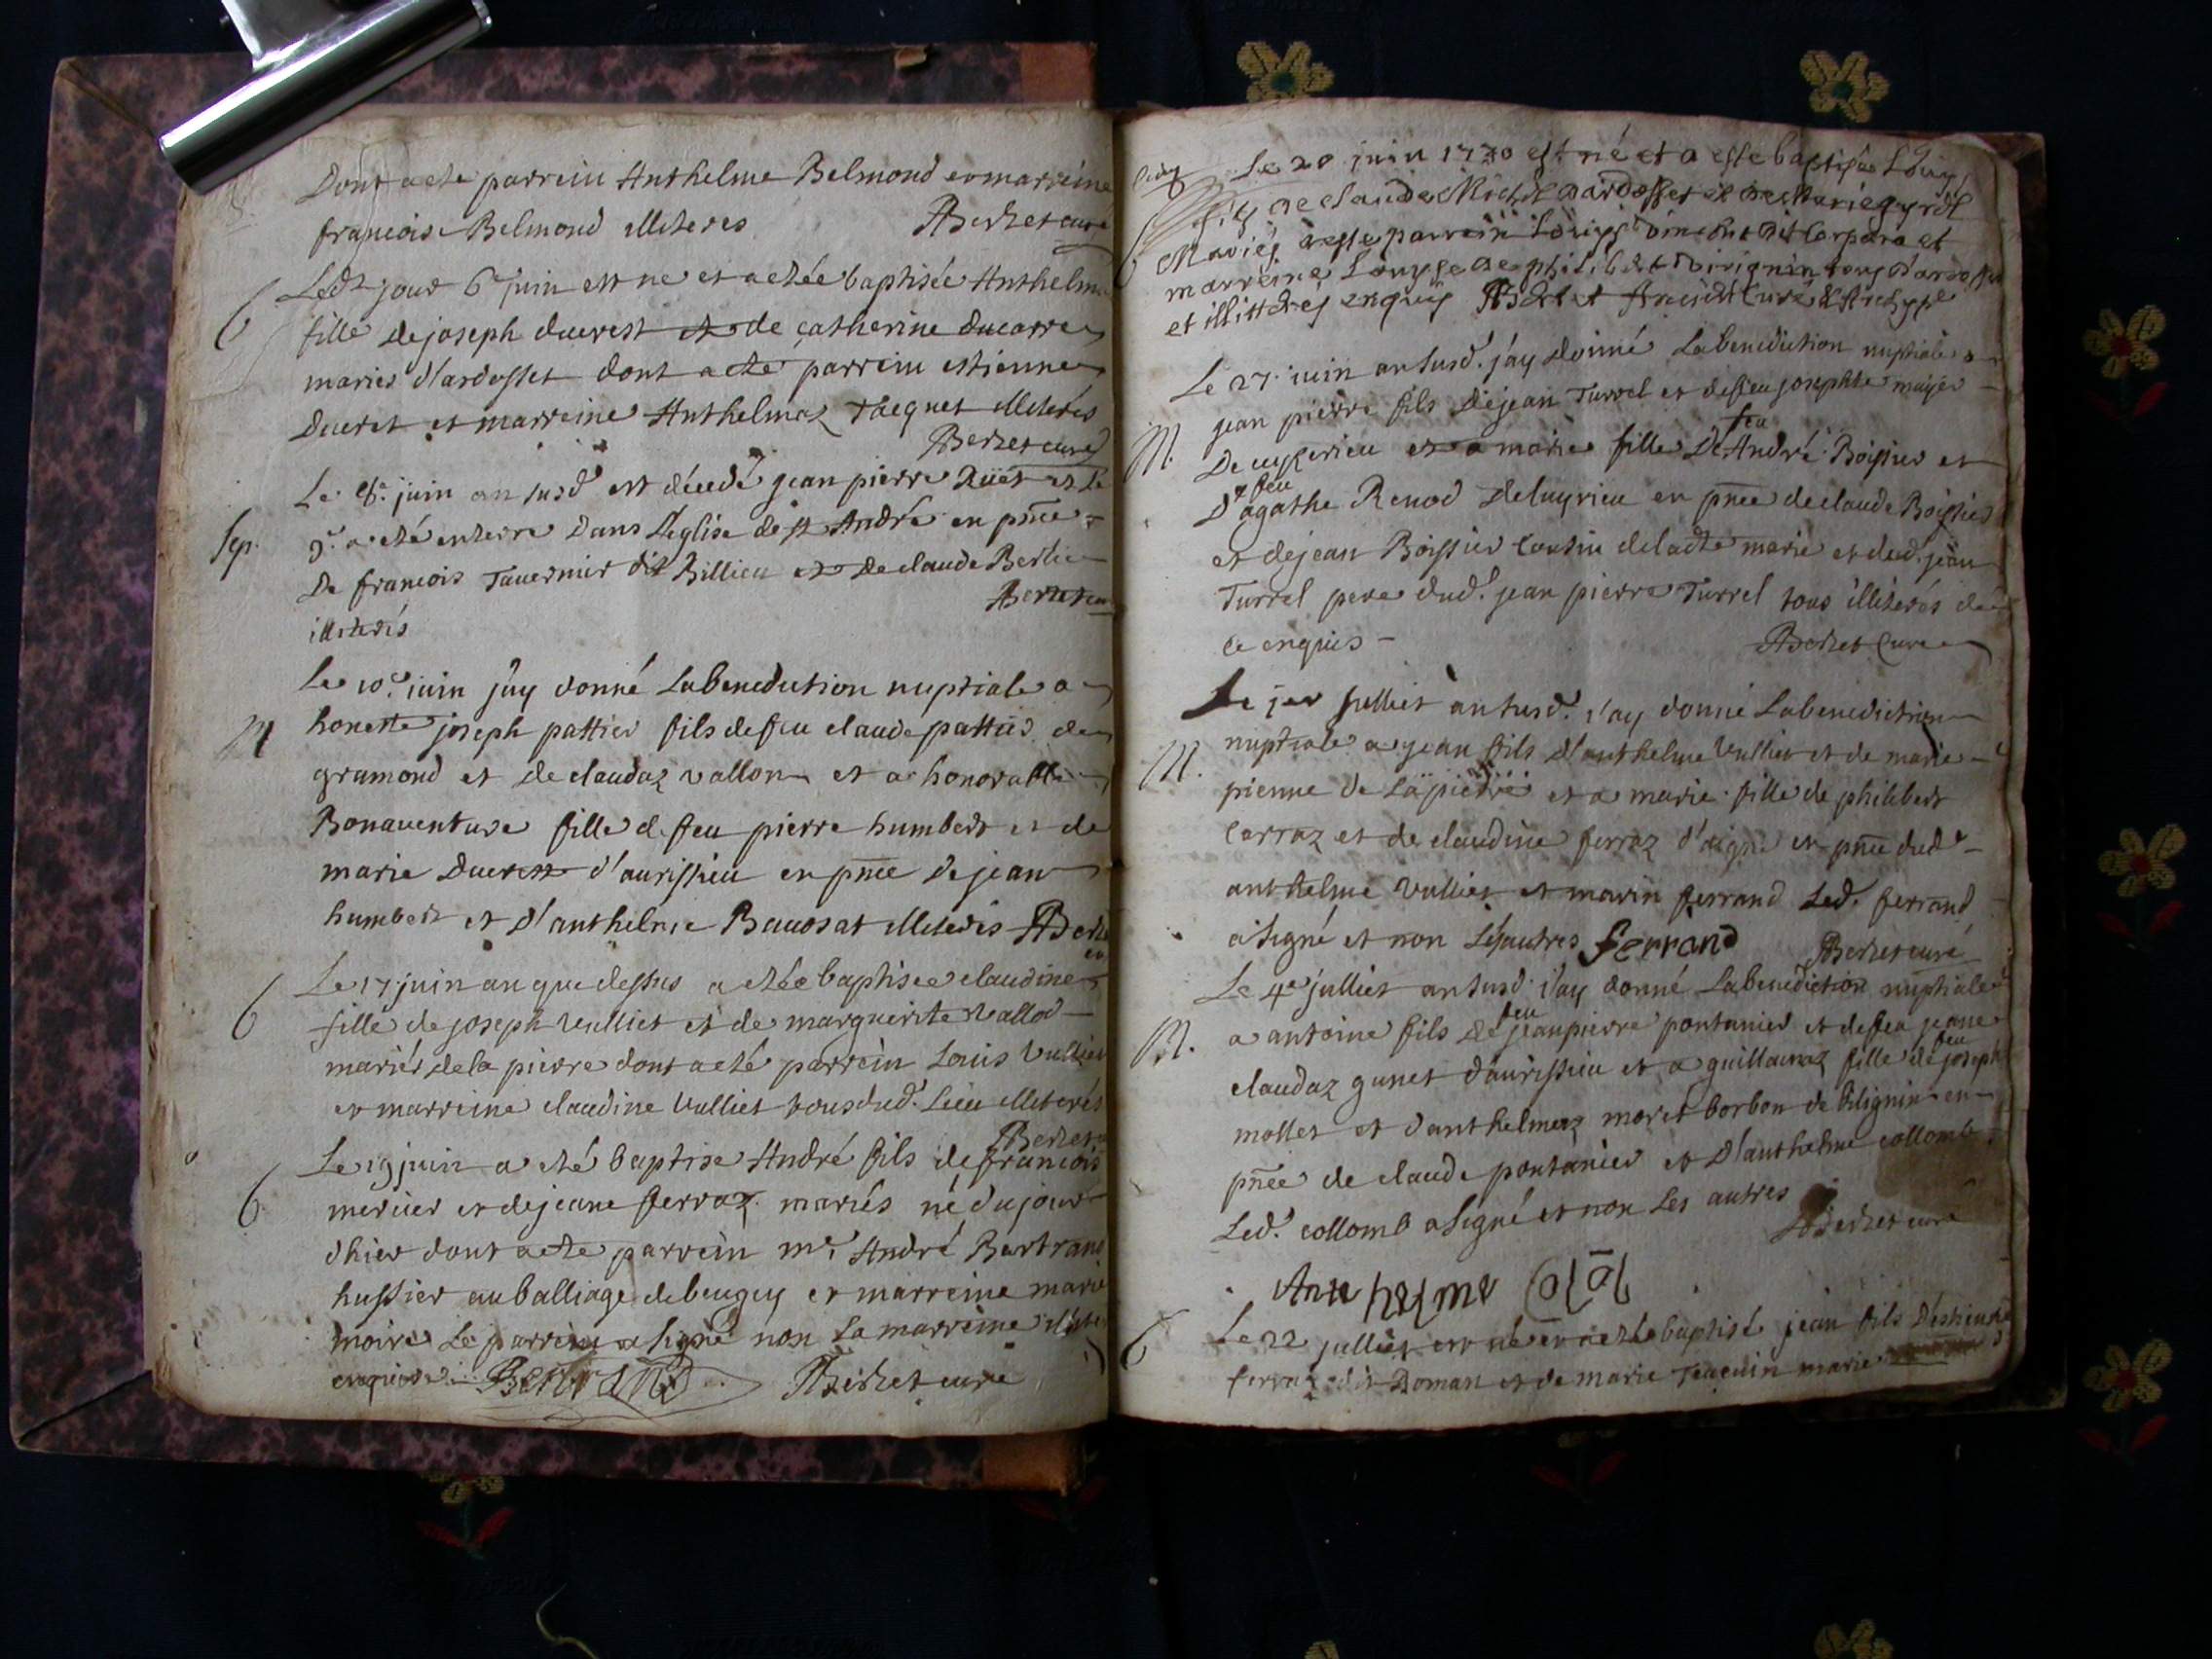 Dont acte parrein Anthelme Belmond et marreine
francoise Belmond illiteres ABerzet curé
6
Led.t jour 6e juin est ne et a etée baptisée Anthelm
fille de joseph ducrest et de catherine ducarre
mariés d'ardosset dont acte parrein estienne
Ducret et marreine Anthelmaz Jacquet illiterés
ABerzet curé
Sep.
Le 8e juin an susd est décedé jean pierre et le
a eté enterre Dans L'eglise de st André en pnce
De francois Tavernier dit Billieu et De claude Berlie
illiterés ABerzet cu
M
Le 10e juin j'ay donné La benediction nuptiale a
honeste joseph pattier fils de feu claude pattier de
gramond et De claudaz vallon et a honorable
Bonaventure fille de feu pierre humbert et de
marie Ducrest d'aurissieu en pnce De jean
humbert et d'anthelme Bavosat illiterés ABerze
6
Le 17 juin an que dessus a etée baptisée claudine
fille de joseph Vulliet et de marguerite vallod
mariés de la pierre dont acté parrein Louis Vulliet
et marreine claudine Vulliet tous dud. Lieu illiterés
ABerzet
6
Le 19 juin a eté baptise André fils de francois
mercier et de jeane ferraz mariés né du jour
d'hier dont acte parrein mr. André Bertrand
hussier au balliage de beugey et marreine marie
moire Le parrein a signé non La marreine
enquise Bertrand ABerzet curé
6
Le 20 juin 1730 est né et a esté baptisée Louis
fils de claude Michel dardosset et de
Mariés a esté parrein Louys dit Carpara et
marreine Louyse de philibert tous d'ardosset
et illitterés enquis ABerzet curé
M.
Le 27 juin an susd. j'ay donné La benediction nuptiale a
jean pierre fils De jean Turrel et de feu josephte
De cuyrerieu et a marie fille De feu André Boissier et
D'feu agathe Renod De luyrieu en pnce de claude Boissier
et de jean Boissier cousin de ladte marie et dud. jean
Turrel pere dud. jean pierre Turrel tous illiterés de
ce enquis ABerzet Curé
M.
Le 1er julliet an susd. j'ay donné La benediction
nuptiale a jean fils d'anthelme Vulliet et de marie
pienne de La pierre et a marie fille de philibert
Carraz et de claudine ferraz en pnce dud
anthelme Vulliet et marin ferrand Led. ferrand
a signé et non Les autres ferrand ABerzet curé
M.
Le 4e julliet an susd. j'ay donné La benediction nuptiale
a antoine fils de feu jeanpierre pontanier et de feu jeane
claudaz gunet d'aurissieu et a guillaumaz fille de feu joseph
mollet et d'anthelmaz moret borbon de bilignin en
pnce de claude pontanier et d'anthelme collomb
Led. collomb a signé et non Les autres
ABerzet curé
Anthelme
6
Le 22 julliet est né et a eté baptisé jean fils d'estienne
ferraz dit Roman et de marie marie